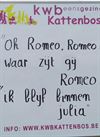 kwb eensgezind
Kattenbos
"Oh Romeo, Romeo
waar zyt gy
Romeo
"ik blyf binnen
julia"
INFO: WWW.KWBKATTENBOS.BE